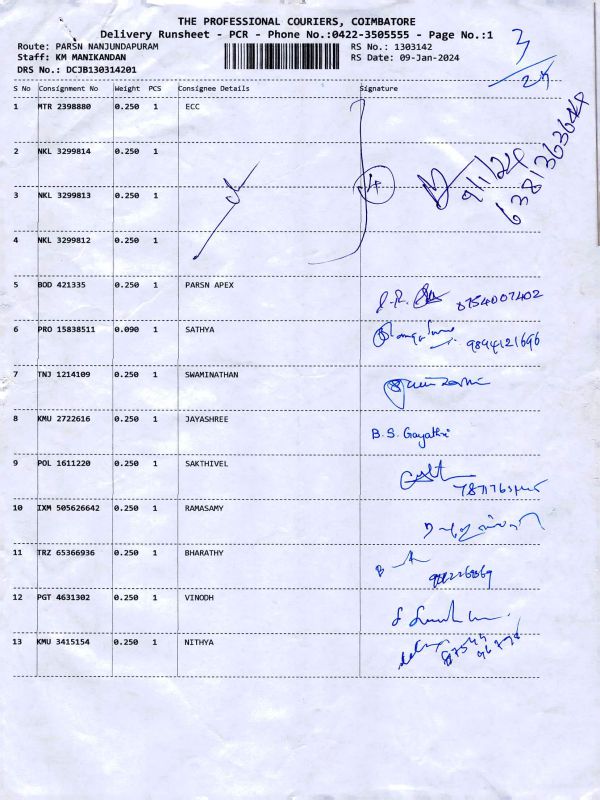 THE PROFESSIONAL COURIERS, COIMBATORE
Delivery Runsheet - PCR - Phone No.:0422-3505555 - Page No.:1
Route: PARSN NANJUNDAPURAM RS No.: 1303142
Staff: KM MANIKANDAN RS Date: 09-Jan-2024
DRS No.: DCJB130314201
3
S No Consignment No Weight PCS Consignee Details Signature
1 MTR 2398880 0.250 1 ECC
2 NKL 3299814 0.250 1
3 NKL 3299813 0.250 1
4 NKL 3299812 0.250 1
4
9/1/24
6381363644
5 BOD 421335 0.250 1 PARSN APEX 8754007402
6 PRO 15838511 0.090 1 SATHYA 9894121696
7 TNJ 1214109 0.250 1 SWAMINATHAN
8 KMU 2722616 0.250 1 JAYASHREE B.S. Gayathri
9 POL 1611220 0.250 1 SAKTHIVEL
10 IXM 505626642 0.250 1 RAMASAMY
11 TRZ 65366936 0.250 1 BHARATHY
12 PGT 4631302 0.250 1 VINODH
13 KMU 3415154 0.250 1 NITHYA